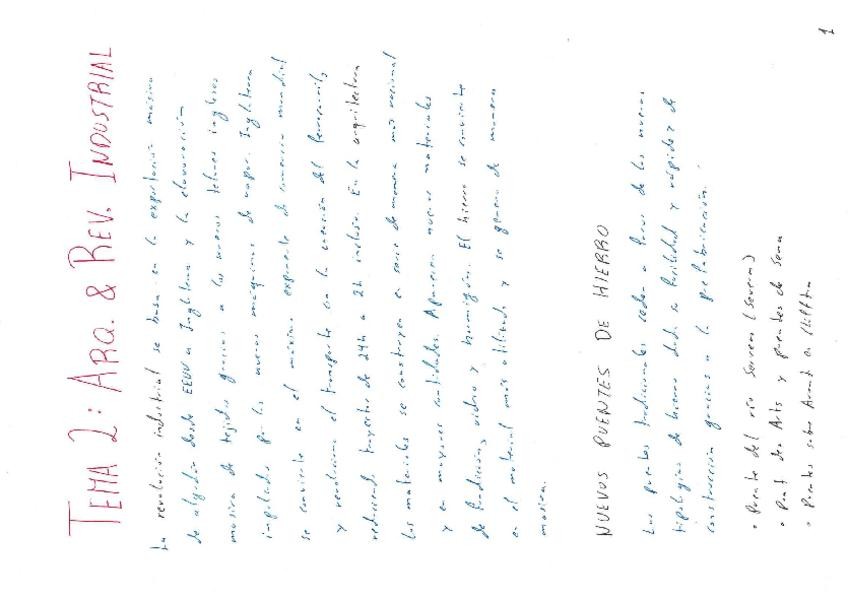 TEMA 2: ARQ. & REV. INDUSTRIAL
La revolución industrial se basa en la exportación máxima
de algodón desde EEUU a Inglaterra y la elaboración
masiva de tejidos gracias a los nuevos telares ingleses
impulsados por las nuevas máquinas de vapor. Inglaterra
se convierte en el máximo exponente de comercio mundial
y revoluciona el transporte con la creación del ferrocarril,
reduciendo trayectos de 24h a 2h inclusive. En la arquitectura
los materiales se construyen en serie de manera más racional
y en mayores cantidades. Aparecen nuevos materiales
de fundición, vidrio y hormigón. El hierro se convierte
en el material más utilizado y se genera de manera
masiva.
NUEVOS PUENTES DE HIERRO
Los puentes tradicionales ceden a favor de las nuevas
tipologías de hierro dada su facilidad y rapidez de
construcción gracias a la prefabricación.
• Puente del río Severn (Severn)
• Pont des Arts y puentes de Sena
• Puentes sobre Avon en Clifton
1